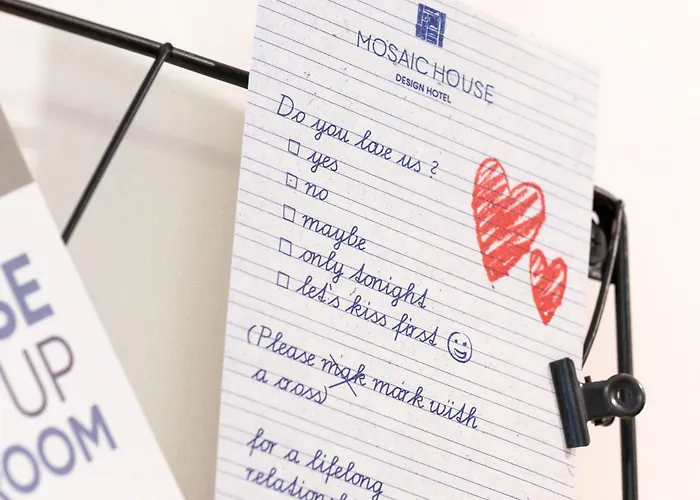 MOSAIC HOUSE
DESIGN HOTEL
Do you love us ?
yes
no
maybe
only tonight
let's kiss first
(Please mark with
a cross)
for a lifelong
UP
ROOM